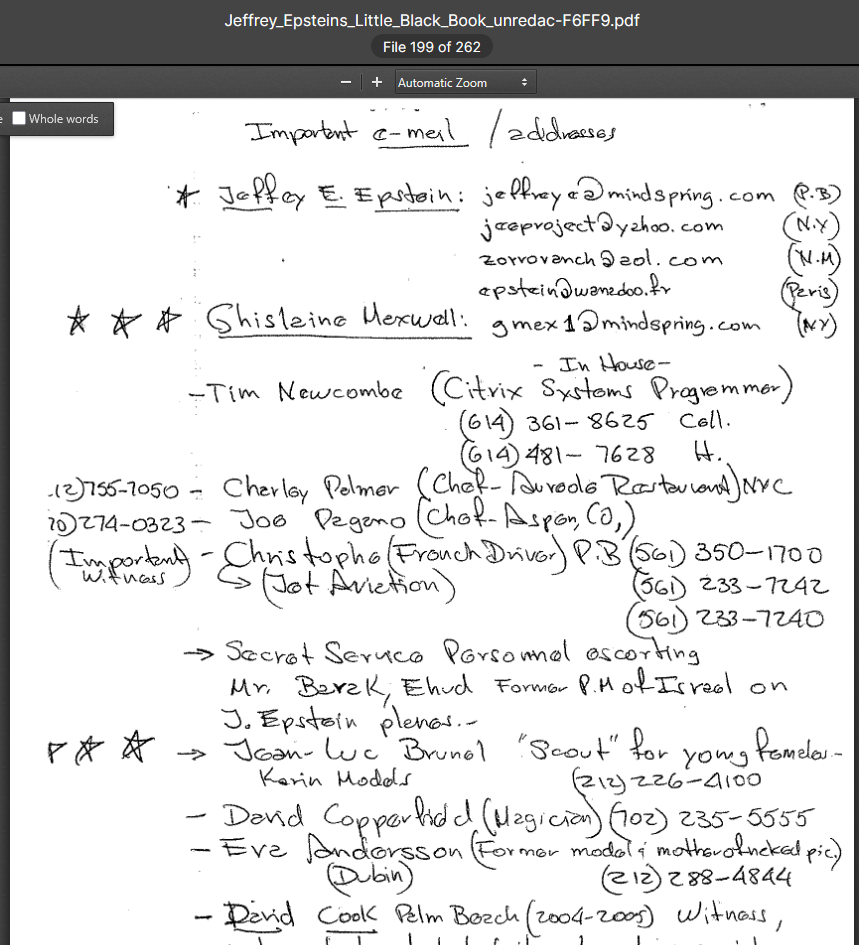 Jeffrey_Epsteins_Little_Black_Book_unredac-F6FF9.pdf
File 199 of 262
− + Automatic Zoom
Whole words
Important e-mail / addresses
Jeffrey E. Epstein: jeffreye@mindspring.com (P.B)
jeeproject@yahoo.com (N.Y)
zorroranch@aol.com (N.M)
epstein@wanadoo.fr (Paris)
Ghislaine Maxwell: gmax1@mindspring.com (NY)
- In House -
- Tim Newcombe (Citrix Systems Programmer)
(614) 361-8625 Cell.
(614) 481-7628 H.
12)755-7050 - Charley Palmer (Chef- Aureole Restaurant) NYC
70)274-0323 - Joe Pagano (Chef- Aspen, CO,)
(Important witness) - Christophe (French Driver) P.B (561) 350-1700
(Jet Aviation) (561) 233-7242
(561) 233-7240
→ Secret Service Personnel escorting
Mr. Barak, Ehud Former P.M of Israel on
J. Epstein planes.-
→ Jean-Luc Brunel "Scout" for young females.-
Karin Models (212) 226-4100
- David Copperfield (Magician) (702) 235-5555
- Eva Andersson (Former model & mother of naked pic.)
(Dubin) (212) 288-4844
- David Cook Palm Beach (2004-2005) Witness,